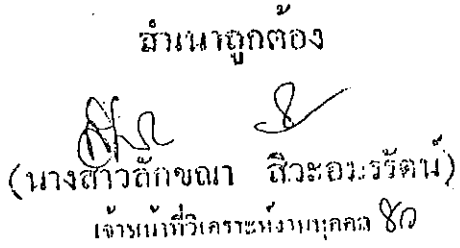 สำเนาถูกต้อง
(นางสาวลักขณา สิวะอมรรัตน์)
เจ้าหน้าที่วิเคราะห์งานบุคคล ๘ว